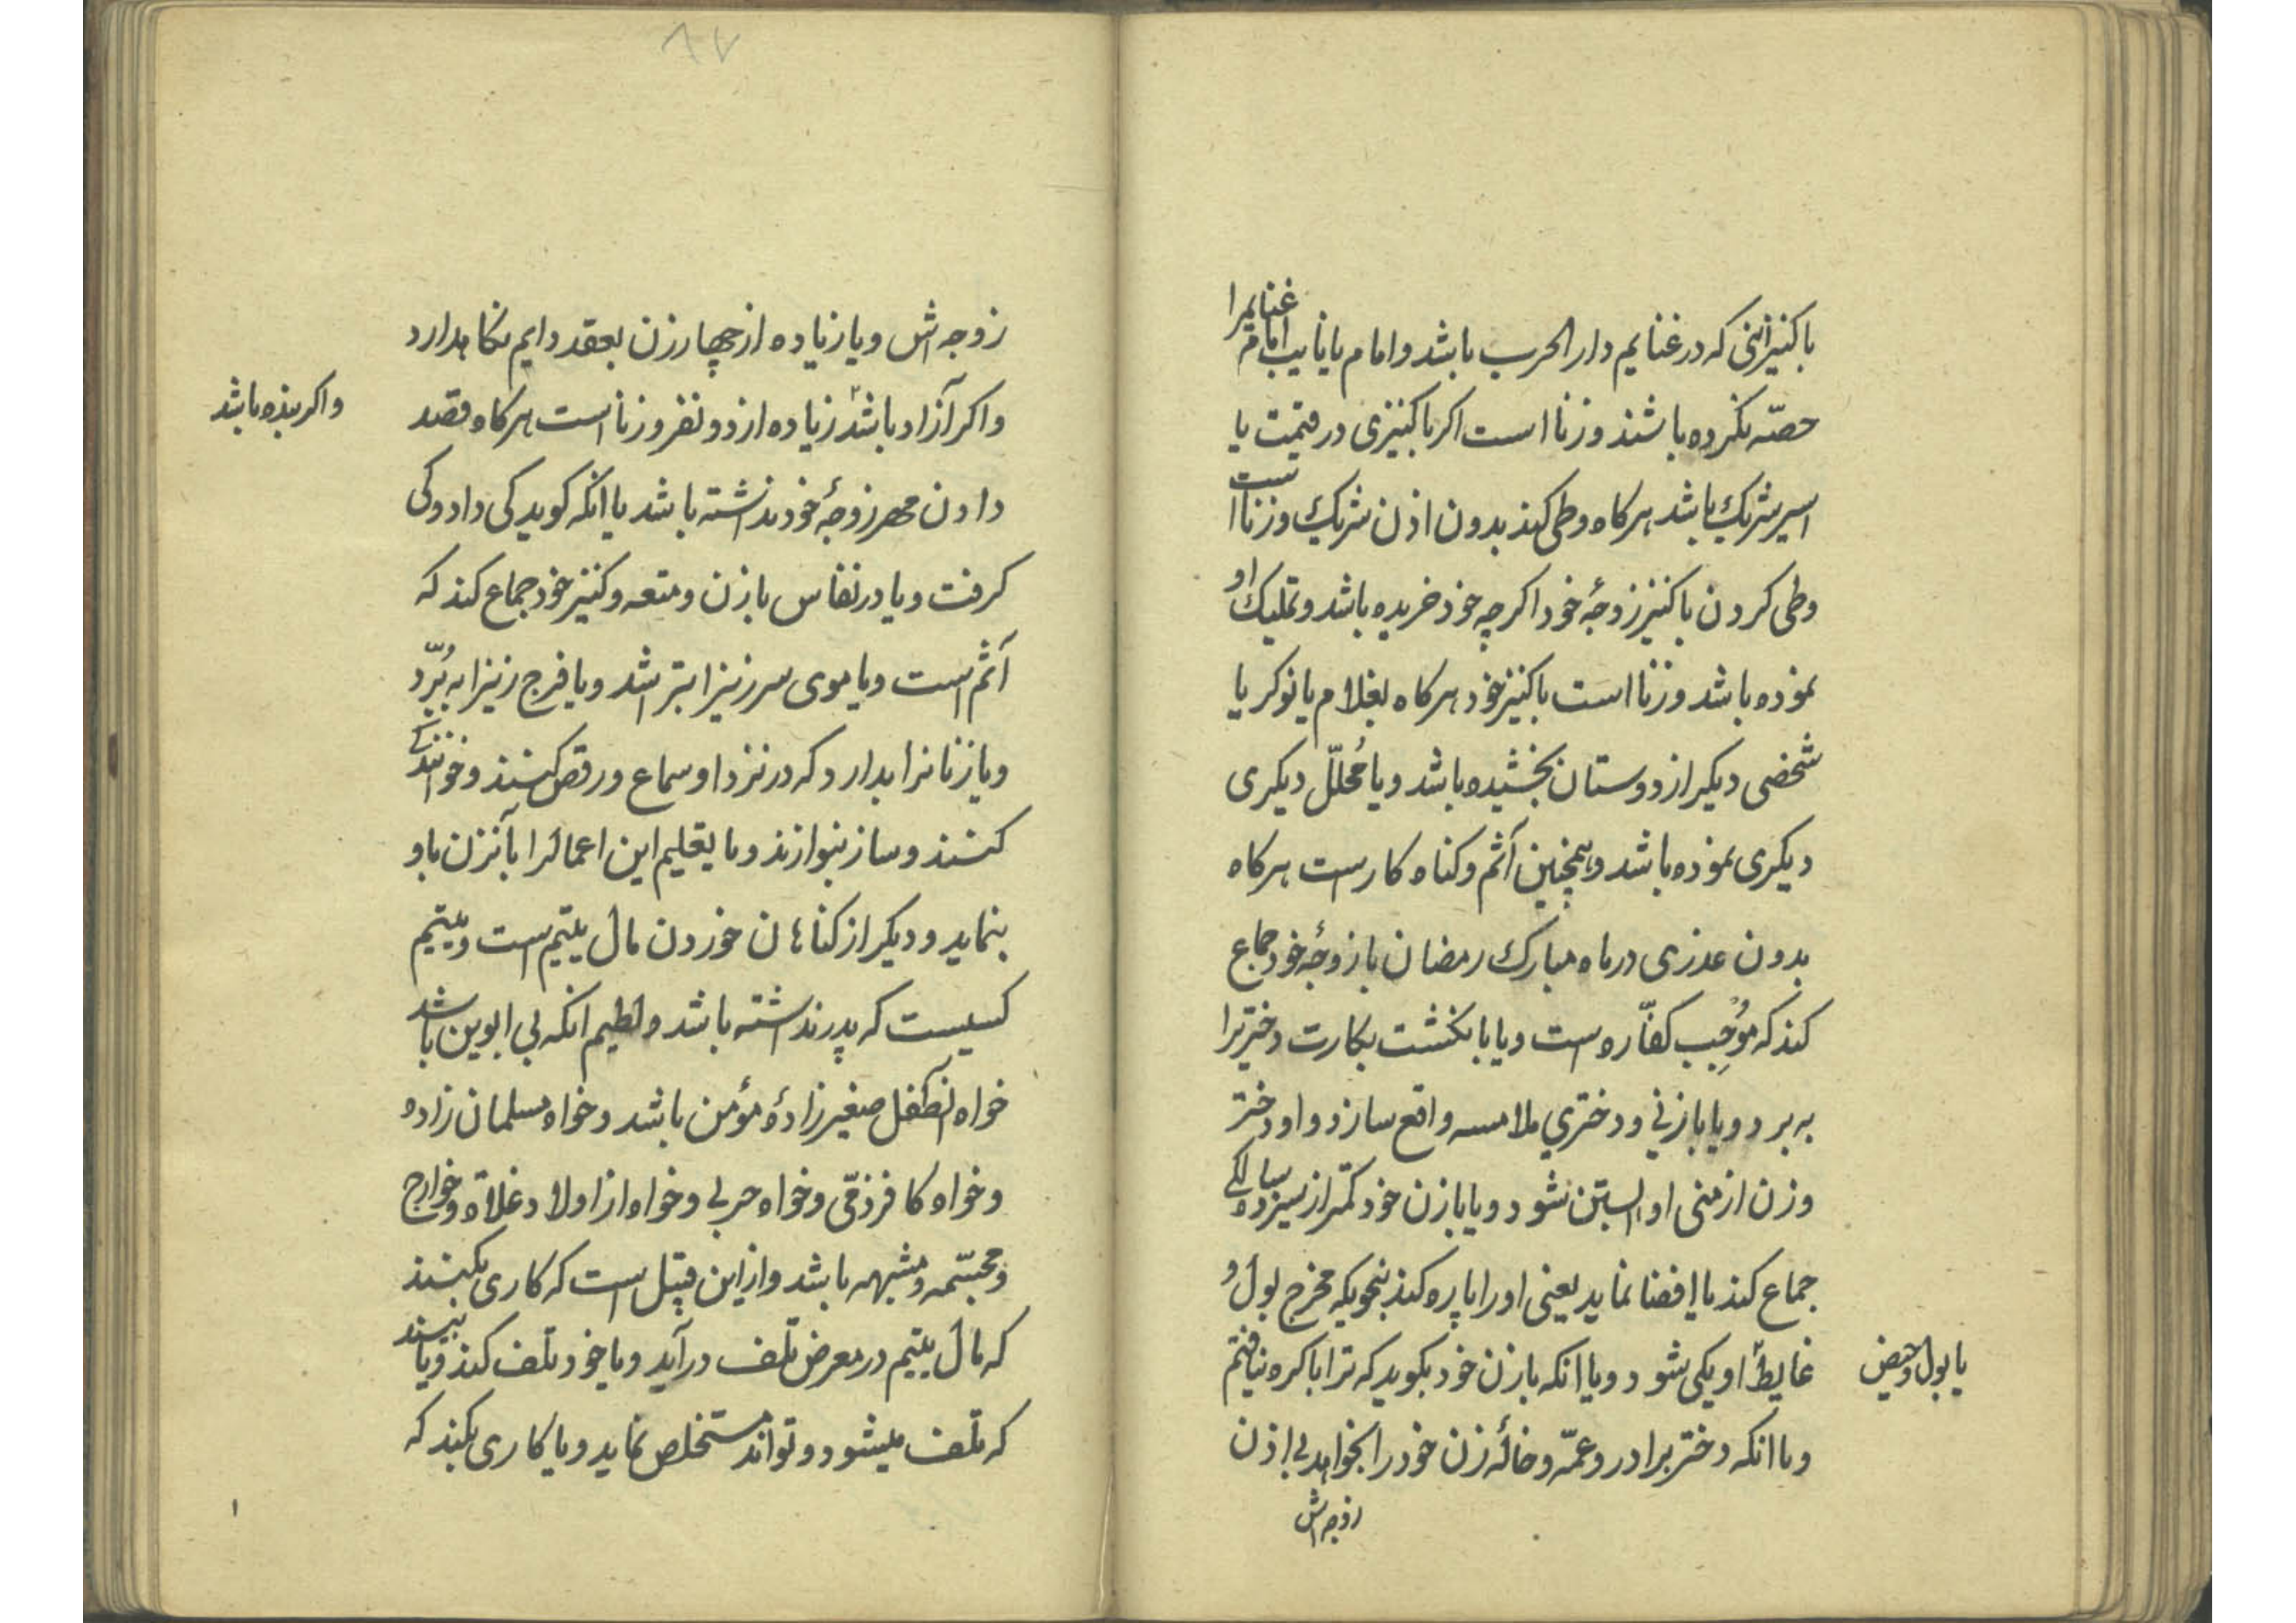 با کنیزانی که در غنایم دار الحرب باشد و امام یا نایب امام غنایمرا
حصّه نکرده باشند و زنا است اکر با کنیزی در قیمت یا
اسیر شریک باشد هرکاه وطی کند بدون اذن شریک و زنا است
وطی کردن با کنیز زوجهٔ خود اکرچه خود خریده باشد و تملیک او
نموده باشد و زنا است با کنیز خود هرکاه بغلام یا نوکر یا
شخصی دیکر از دوستان بخشیده باشد و یا مُحلّل دیکری
دیکری نموده باشد و همچنین آثم و کناه کارست هرکاه
بدون عذری در ماه مبارک رمضان با زوجهٔ خود جماع
کند که مُوْجِب کفّاره است و یا بانکشت بکارت دختریرا
به برد و یا با زنی و دختري ملامسه واقع سازد و او دختر
و زن از منی او آبستن شود و یا با زن خود کمتر از سیزده سالکی
جماع کند یا إفضا نماید یعنی او را پاره کند بنحویکه مخرج بول و
غایط او یکی شود و یا انکه با زن خود بکوید که ترا باکره نیافتم
یا بول و حیض
و یا انکه دختر برادر و عمّه و خالهٔ زن خود را بخواهد بی اذن
زوجه اش
۸۷
زوجه اش و یا زیاده از چهار زن بعقد دایم نکاهدارد
و اکر آزاد باشد زیاده از دو نفر و زنا است هرکاه قصد
و اکر بنده باشد
دادن مهر زوجهٔ خود نداشته باشد یا انکه کوید کی داد و کی
کرفت و یا در نفاس با زن و متعه و کنیز خود جماع کند که
آثم است و یا موی سر زنیرا بتراشد و یا فرج زنیرا به بُرّد
و یا زنانرا بدارد که در نزد او سماع و رقص کنند و خوانندکی
کنند و ساز بنوازند و یا تعلیم این اعمالرا بآنزن یاو
بنماید و دیکر از کناهان خوردن مال یتیم است و یتیم
کسیست که پدر نداشته باشد و لطیم انکه بی ابوین باشد
خواه انطفل صغیر زادهٔ مؤمن باشد و خواه مسلمان زاده
و خواه کافر ذمّی و خواه حربی و خواه از اولاد غلاة و خوارج
و مجسّمه و مشبهه باشد و از این قبیل است که کاری بکنند
که مال یتیم در معرض تلف درآید و یا خود تلف کند و یا بیند
که تلف میشود و تواند مستخلص نماید و یا کاری بکند که